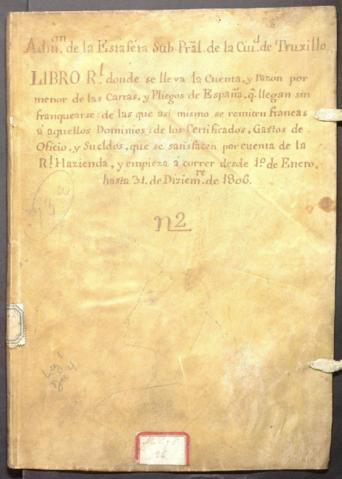 Adm.ⁿ de la Estafeta Sub Prãl. de la Ciu.ᵈ de Truxillo
LIBRO R.ˡ donde se lleva la Cuenta, y razon por
menor de las Cartas, y Pliegos de España, q.ᵉ llegan sin
franquearse: de las que asi mismo se remiten francas
á aquellos Dominios: de los Certificados, Gastos de
Oficio, y Sueldos, que se satisfacen por cuenta de la
R.ˡ Hazienda, y empieza á correr desde 1.º de Enero,
hasta 31. de Diziem.ʳᵉ de 1806.
n2